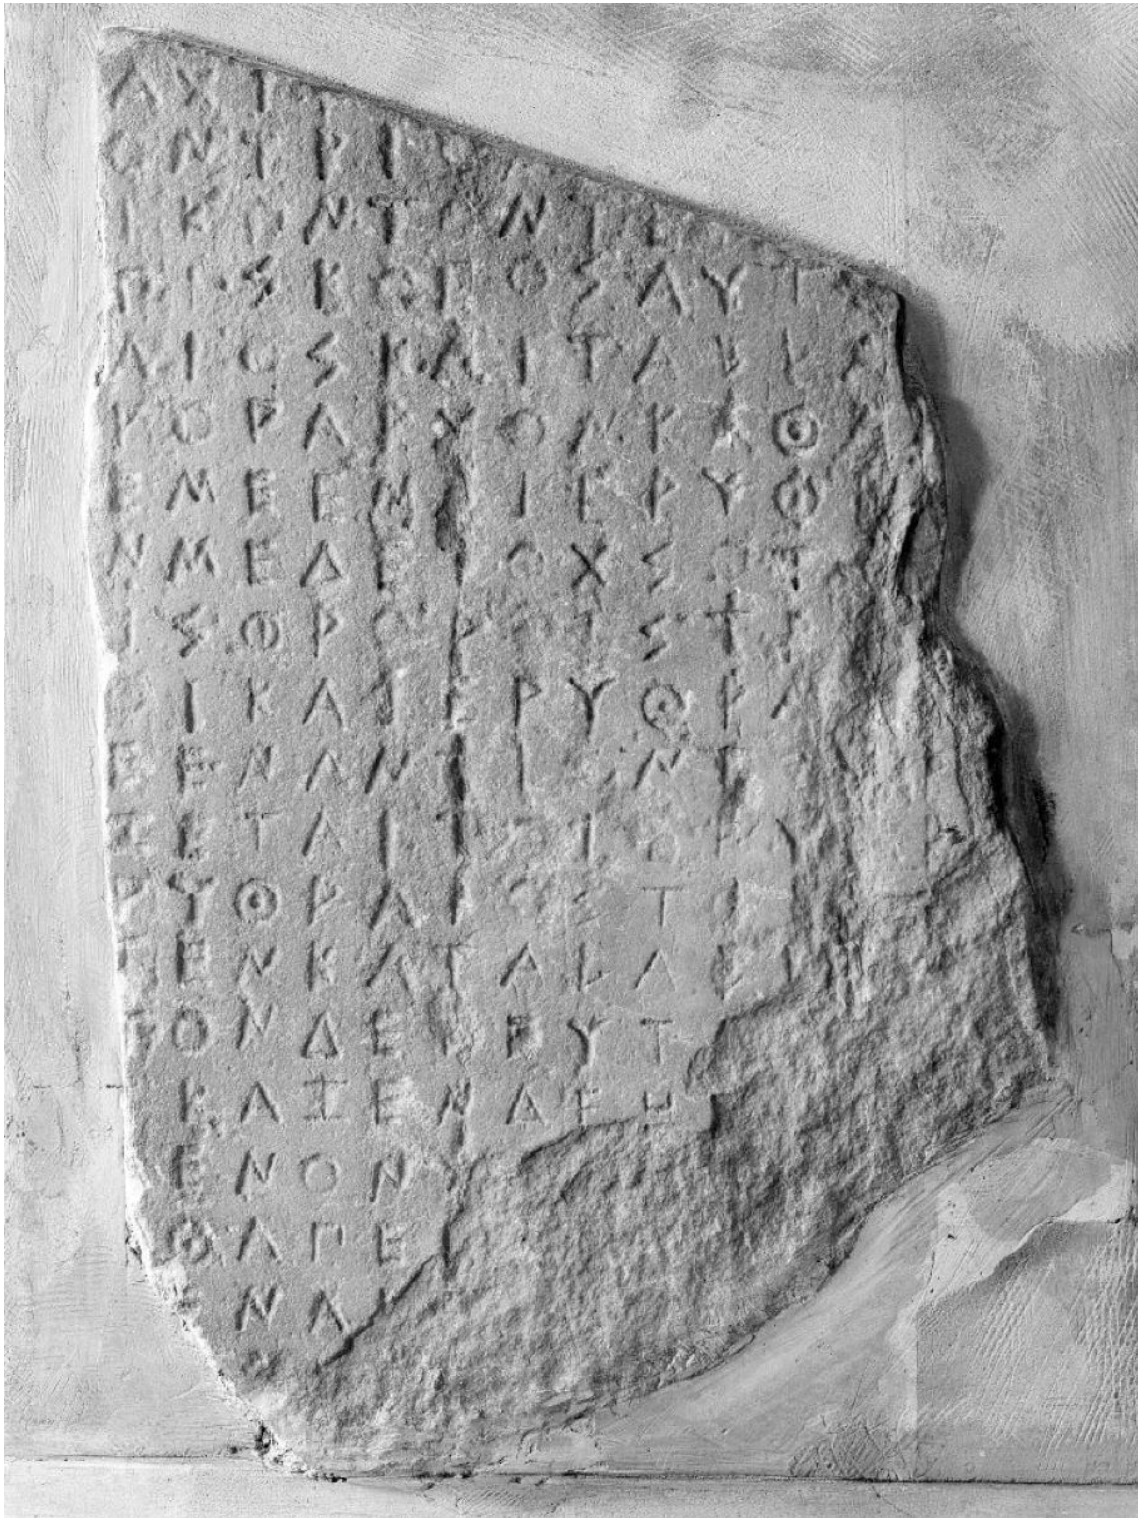 ΛΧΙ
ΟΝΤΡΙ
ΙΚΟΝΤΟΝΙΕ
ΠΙΣΚΟΠΟΣΑΥΤ
ΛΙΟΣΚΑΙΤΑΨΙΑ
ΡΟΡΑΡΧΟΝΚΑΘΑ
ΕΜΕΕΝΑΙΓΡΥΘ
ΝΜΕΔΕ ΟΧΣΟΤ
ΙΣΘΡΟ ΕΟΤΣΤΕ
ΘΙΚΑΙΕΡΥΘΡΑ
ΕΕΝΑΝΤΙΟΝΕ
ΞΕΤΑΙΤΟΙΟΡΥ
ΡΥΘΡΑΙΟΣΤΕ
ΡΕΝΚΑΤΑLΑΕΙ
ΤΟΝΔΕΕΡΥΤ
ΚΑΙΕΝΔΕΜ
ΕΝΟΝ
ΘΑΠΕ
ΕΝΑΥ